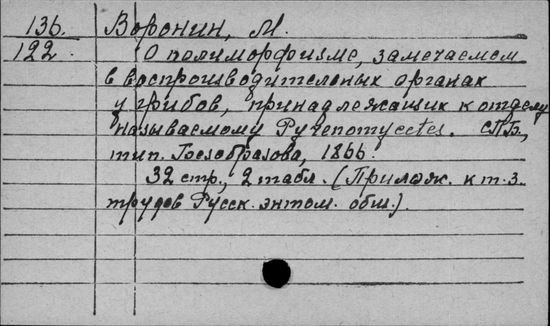 136. Воронин, М.
122. О полиморфизме, замечаемом
в воспроизводительных органах
у грибов, принадлежащих к отделу
называемому Pyrenomycetes. СПБ.,
тип. Безобразова, 1866.
32 стр., 2 табл. (Прилож. к т. 3.
трудов Русск. энтом. общ.).